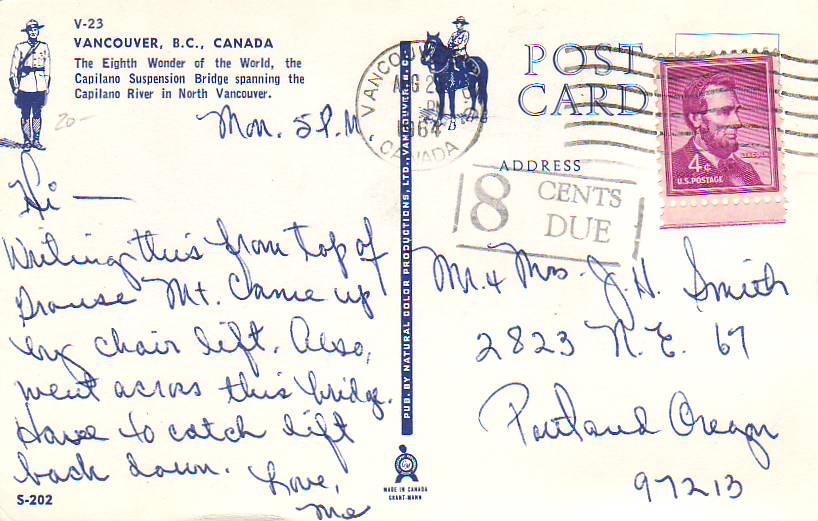 V-23
VANCOUVER, B.C., CANADA
The Eighth Wonder of the World, the
Capilano Suspension Bridge spanning the
Capilano River in North Vancouver.
20-
Mon. 5 P.M.
Hi —
Writing this from top of
Grouse Mt. Came up
by chair lift. Also,
went across this bridge.
Have to catch lift
back down. Love,
Me
S-202
PUB. BY NATURAL COLOR PRODUCTIONS, LTD., VANCOUVER, B.C.
MADE IN CANADA
GRANT-MANN
POST
CARD
ADDRESS
VANCOUVER
AUG 2
PM
1964
B.C.
CANADA
8 CENTS
DUE
4¢
U.S. POSTAGE
Mr. & Mrs. J. H. Smith
2823 N.E. 67
Portland Oregon
97213